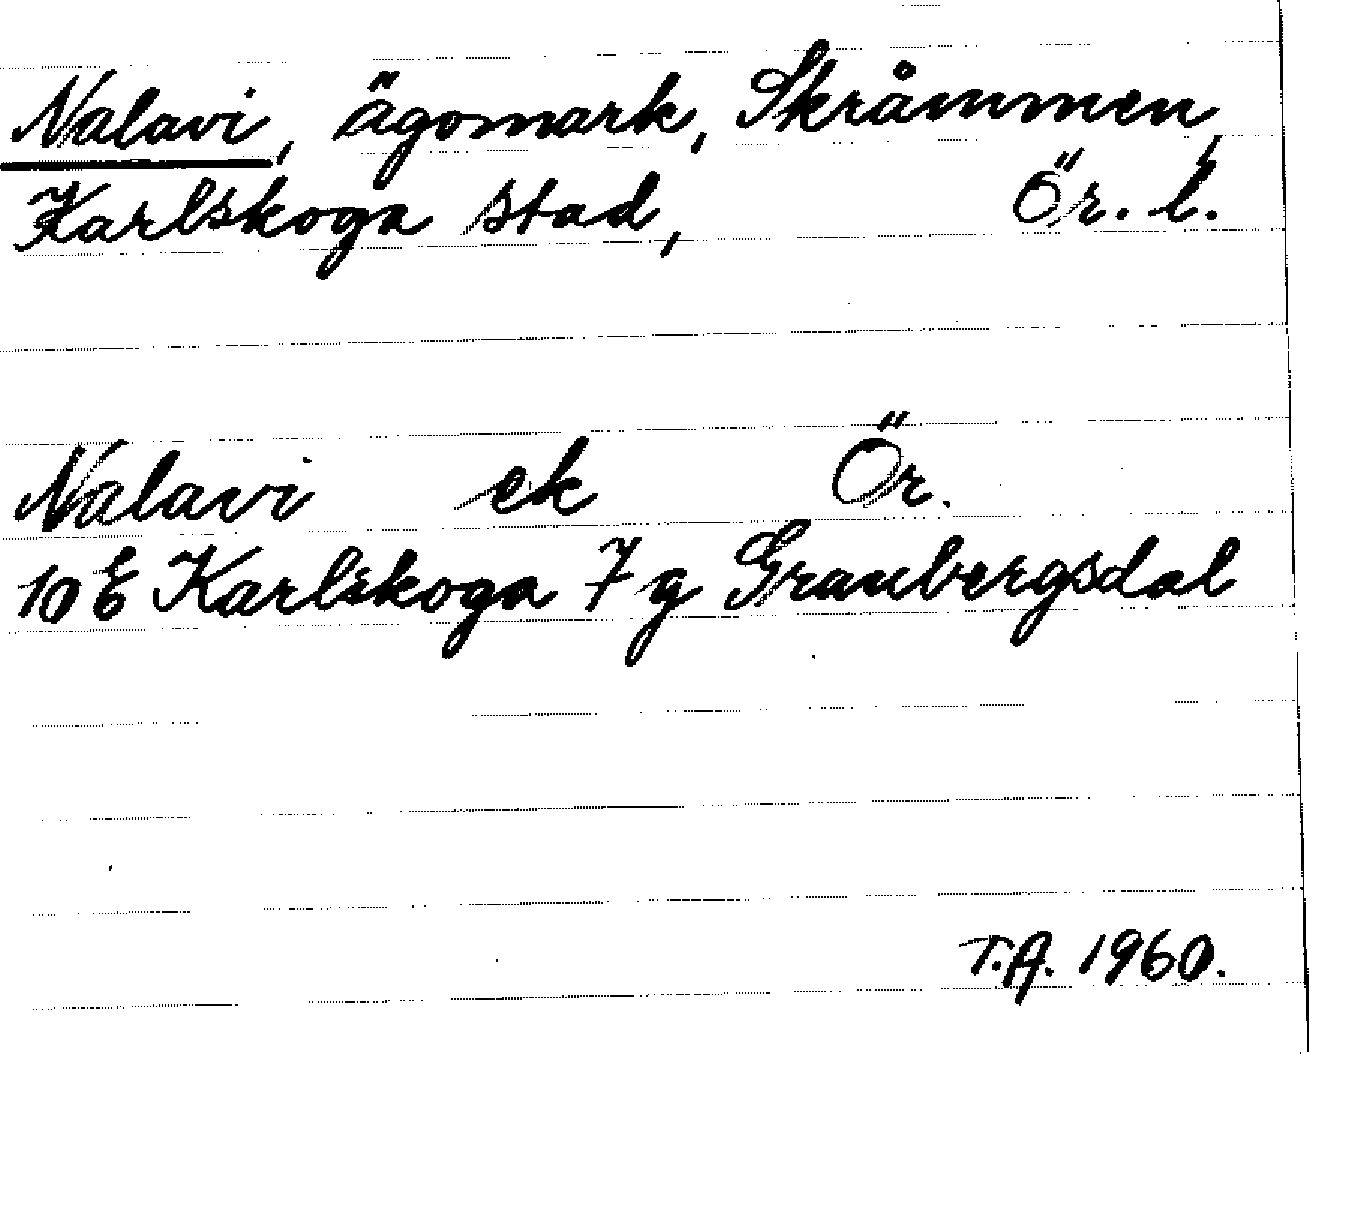 Nalavi, ägomark, Skråmmen,
Karlskoga stad, Ör. l.
Nalavi ek Ör.
10 E Karlskoga 7 g Granbergsdal
T.A. 1960.